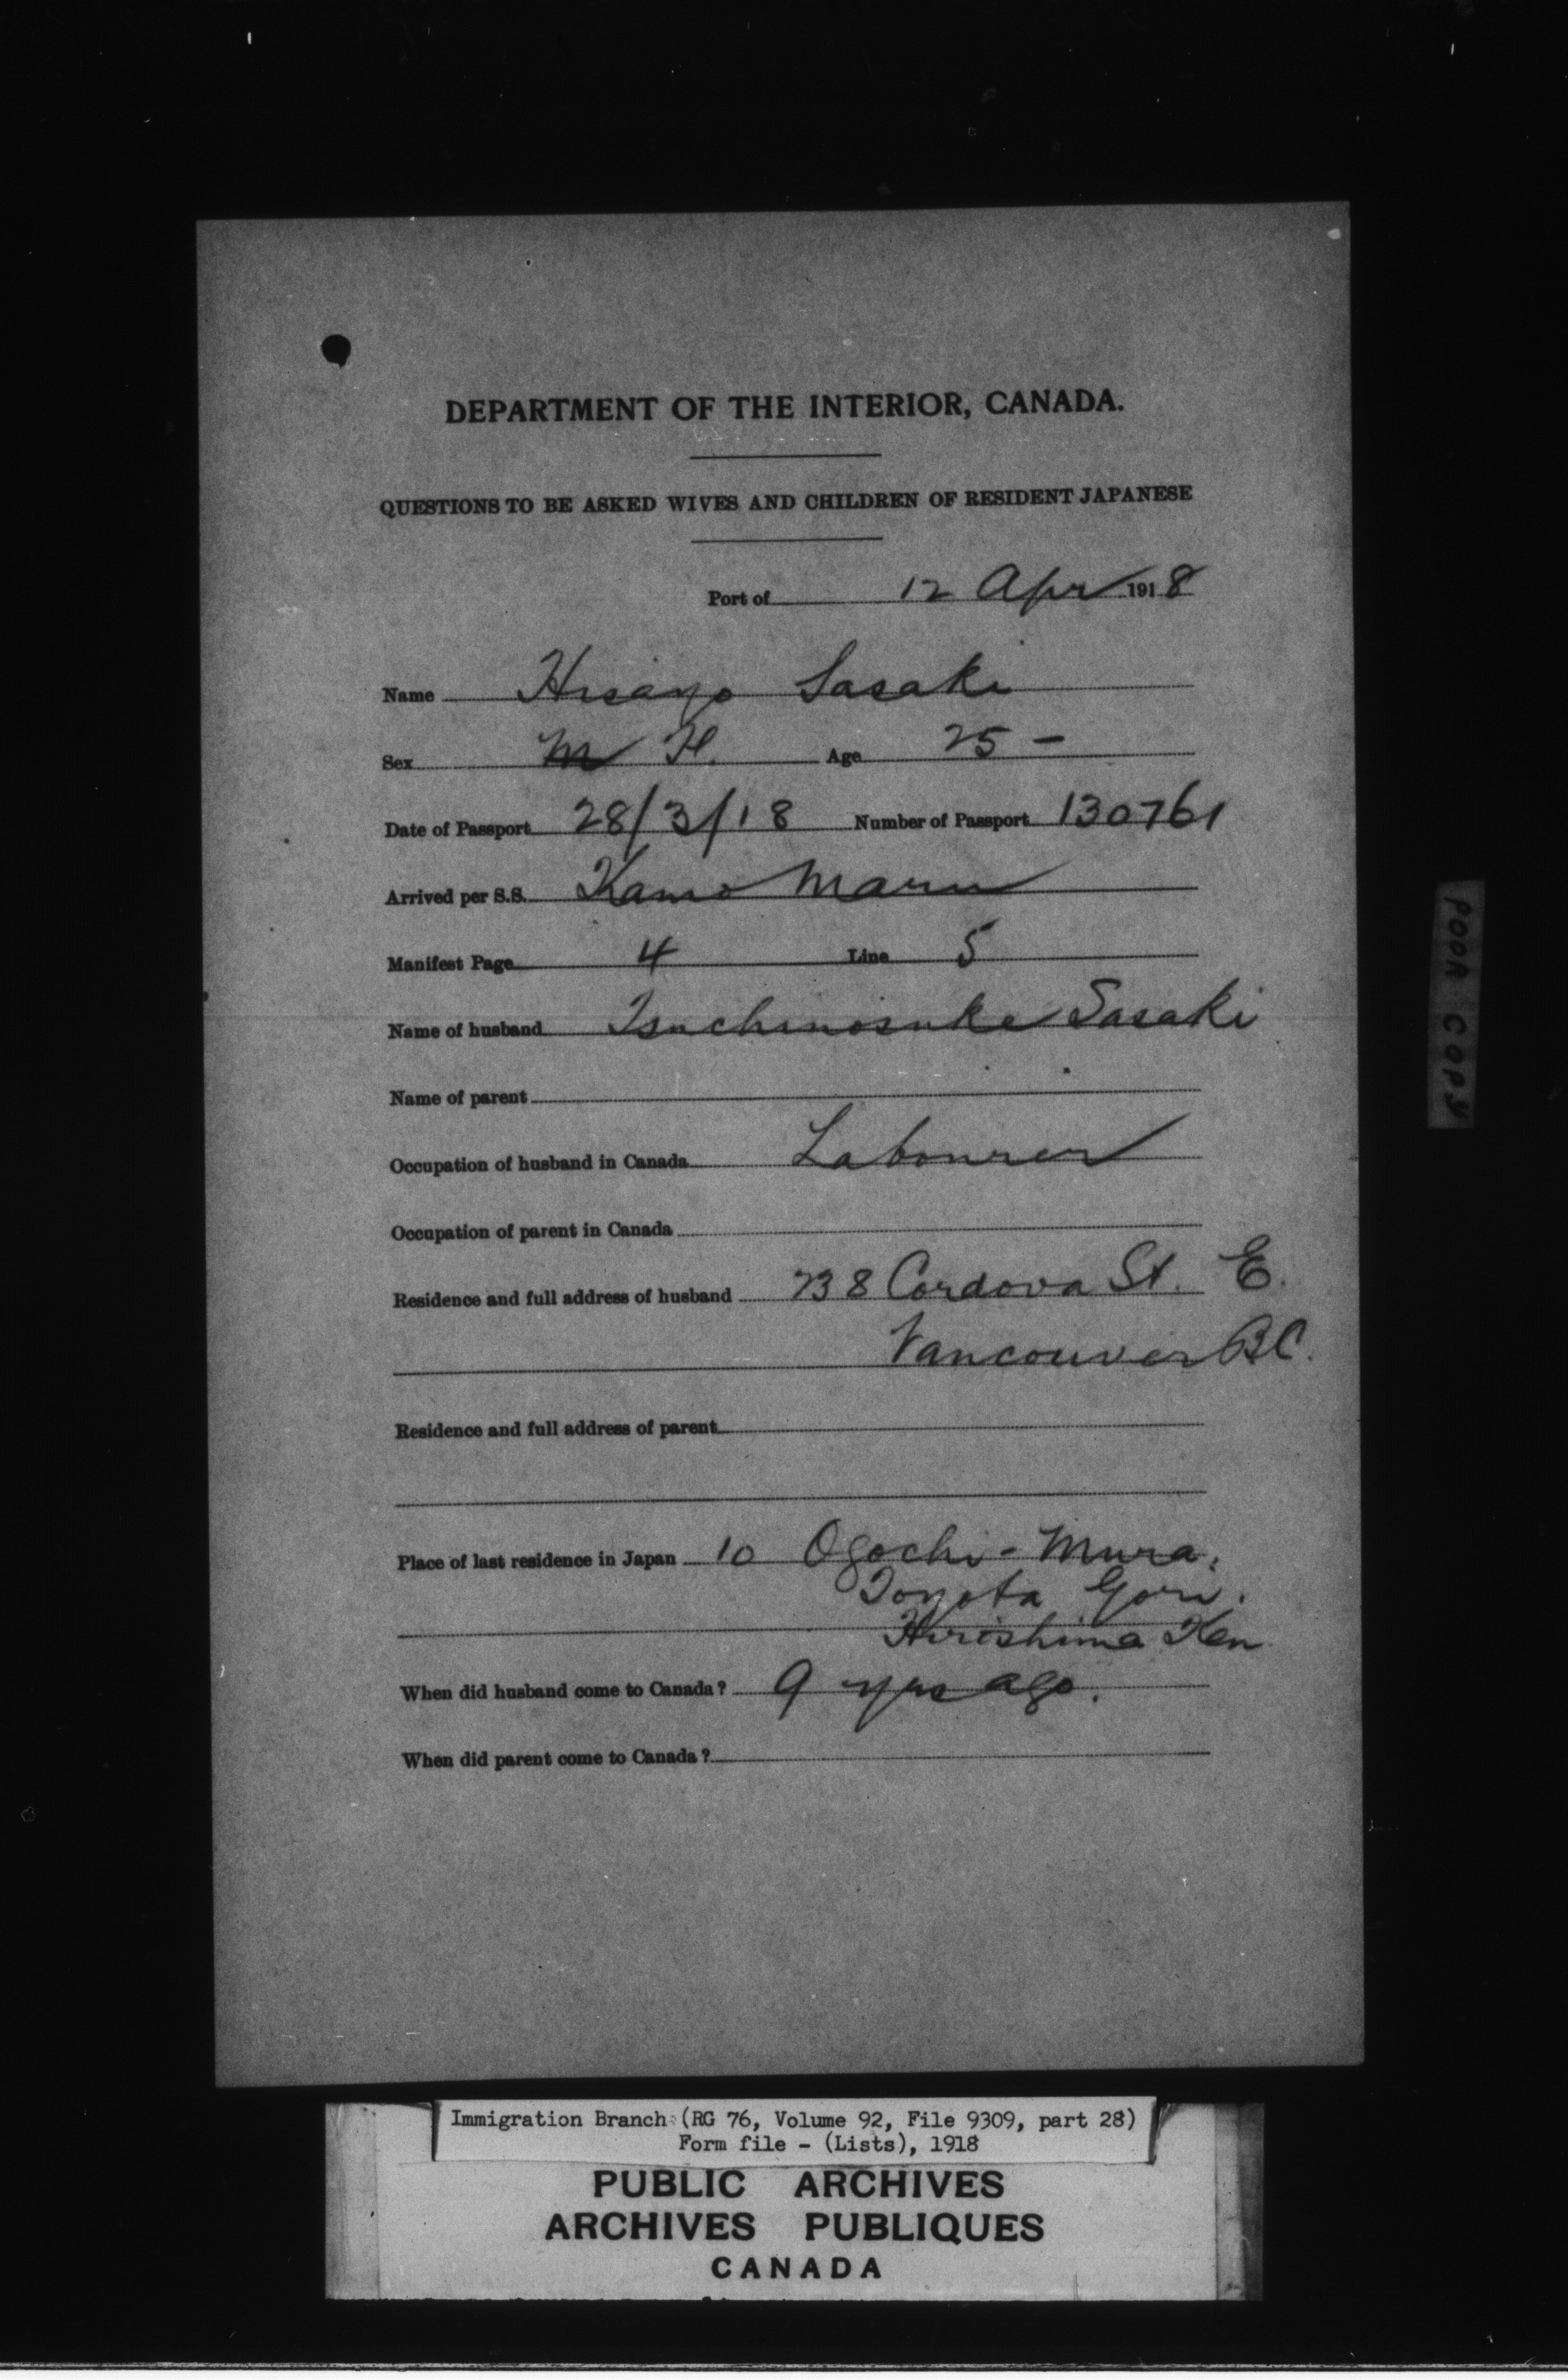 DEPARTMENT OF THE INTERIOR, CANADA.
QUESTIONS TO BE ASKED WIVES AND CHILDREN OF RESIDENT JAPANESE
Port of 12 Apr 1918
Name Hisayo Sasaki
Sex M F. Age 25 -
Date of Passport 28/3/18 Number of Passport 130761
Arrived per S.S. Kamo Maru
Manifest Page 4 Line 5
Name of husband Tsuchinosuke Sasaki
Name of parent
Occupation of husband in Canada Labourer
Occupation of parent in Canada
Residence and full address of husband 238 Cordova St. E.
Vancouver BC.
Residence and full address of parent
Place of last residence in Japan 10 Ogochi-Mura,
Toyota Gori.
Hiroshima Ken
When did husband come to Canada? 9 yrs ago.
When did parent come to Canada?
POOR COPY
Immigration Branch (RG 76, Volume 92, File 9309, part 28)
Form file - (Lists), 1918
PUBLIC ARCHIVES
ARCHIVES PUBLIQUES
CANADA